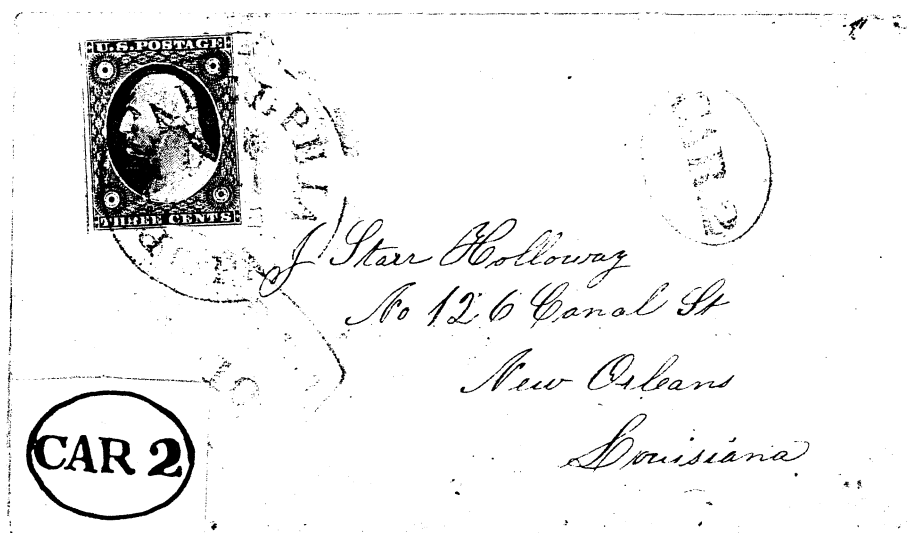 U.S. POSTAGE
THREE CENTS
CAR 2
J Starr Holloway
No 126 Canal St
New Orleans
Louisiana
CAR 2